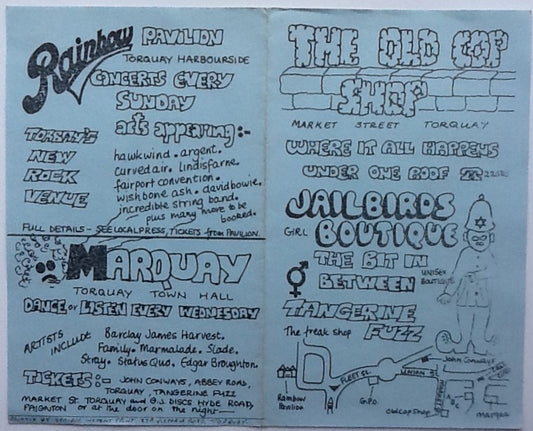 Rainbow PAVILION
TORQUAY HARBOURSIDE
CONCERTS EVERY
SUNDAY
TORBAY'S
NEW
ROCK
VENUE
acts appearing:-
hawkwind. argent.
curved air. lindisfarne.
fairport convention.
wishbone ash. david bowie.
incredible string band.
plus many more to be
booked.
FULL DETAILS - SEE LOCAL PRESS, TICKETS from PAVILION.
MARQUAY
TORQUAY TOWN HALL
DANCE or LISTEN EVERY WEDNESDAY
ARTISTS
INCLUDE
Barclay James Harvest.
Family. Marmalade. Slade.
Stray. Status Quo. Edgar Broughton.
TICKETS:- JOHN CONWAYS, ABBEY ROAD,
TORQUAY, TANGERINE FUZZ
MARKET ST. TORQUAY and G.J. DISCS HYDE ROAD,
PAIGNTON or at the door on the night
THE OLD COP
SHOP
MARKET STREET TORQUAY
WHERE IT ALL HAPPENS
UNDER ONE ROOF
JAILBIRDS
GIRL BOUTIQUE
THE BIT IN
BETWEEN
UNISEX
BOUTIQUE
TANGERINE
The freak shop FUZZ
JOHN CONWAYS
FLEET ST.
UNION ST
Rainbow
Pavilion
G.P.O.
old cop shop
A.B.C.
marquee